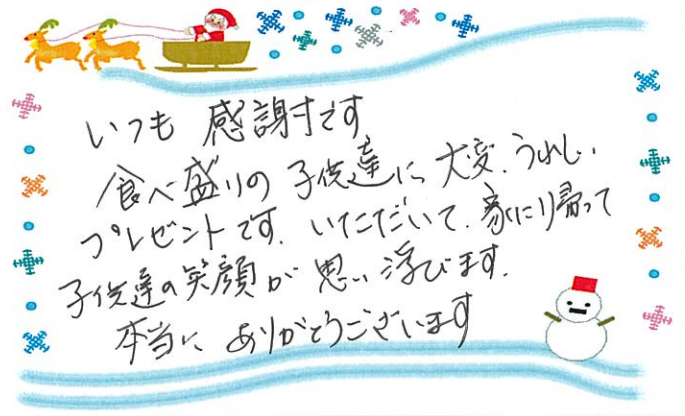 いつも 感謝です
食べ盛りの 子供達に 大変、うれしい
プレゼントです、いただいて、家に帰って
子供達の笑顔が 思い浮びます。
本当に ありがとうございます